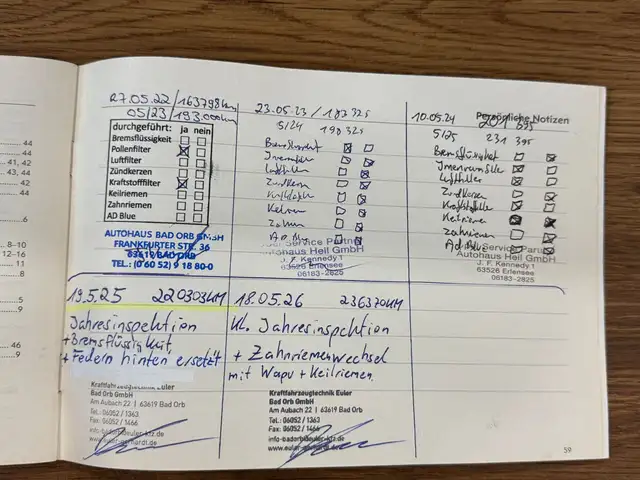 44
44
41, 42
44
42
42
44
44
6
8–10
12–16
11
8
5
9
46
9
27.05.22 / 163798km
05/23 193.000km
durchgeführt: ja nein
Bremsflüssigkeit
Pollenfilter
Luftfilter
Zündkerzen
Kraftstofffilter
Keilriemen
Zahnriemen
AD Blue
AUTOHAUS BAD ORB GMBH
FRANKFURTER STR. 36
63619 BAD ORB
TEL.: (0 60 52) 9 18 80-0
23.05.23 / 183 325
5/24 198 325
Luftfilter
Zündkerzen
Keilriemen
Zahnr
Ad Blue
Service Partner
Autohaus Heil GmbH
J. F. Kennedy 1
63526 Erlensee
06183-2825
Persönliche Notizen
10.05.24 201 395
5/25 231 395
Bremsflüssigkeit
Innenraumfilter
Luftfilter
Zündkerzen
Kraftstofffilter
Keilriemen
Zahnriemen
Ad Blue
Service Partner
Autohaus Heil GmbH
J. F. Kennedy 1
63526 Erlensee
06183-2825
19.5.25 220303KM
Jahresinspektion
+ Bremsflüssigkeit
+ Federn hinten ersetzt
Kraftfahrzeugtechnik Euler
Bad Orb GmbH
Am Aubach 22 | 63619 Bad Orb
Tel.: 06052 / 1363
Fax: 06052 / 1466
info-badorb@euler-kfz.de
www.euler-gerhardt.de
18.05.26 236370KM
Kl. Jahresinspektion
+ Zahnriemenwechsel
mit Wapu + Keilriemen
Kraftfahrzeugtechnik Euler
Bad Orb GmbH
Am Aubach 22 | 63619 Bad Orb
Tel.: 06052 / 1363
Fax: 06052 / 1466
info-badorb@euler-kfz.de
www.euler-gerhardt.de
59